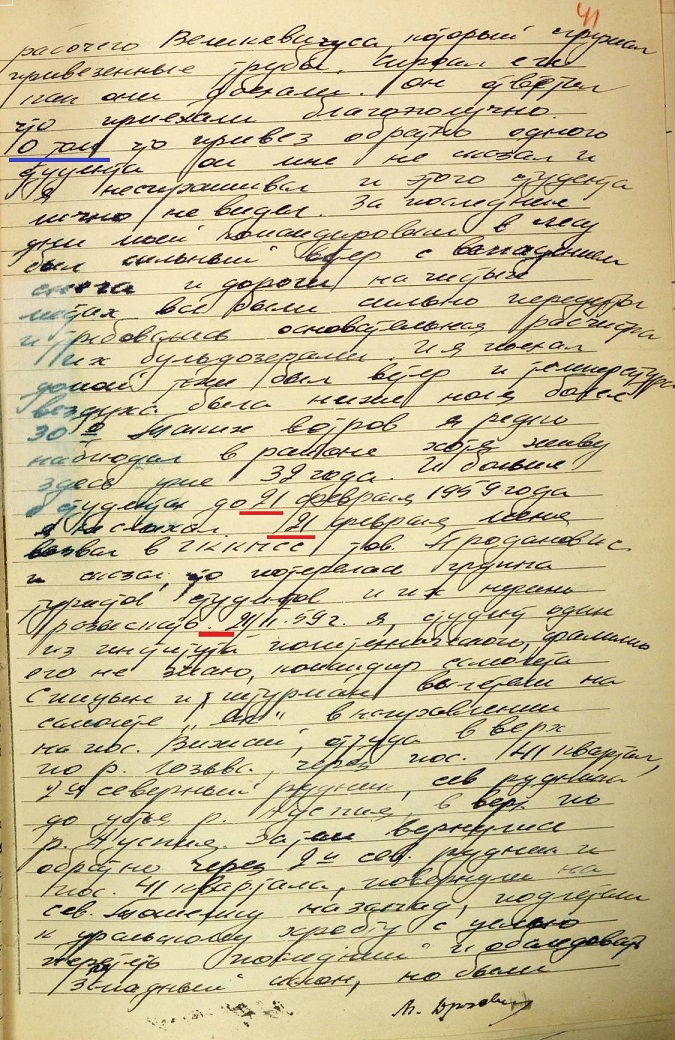 41
рабочего Великевичуса, который сгружал
привезенные трубы. Спросил его
как они доехали. Он ответил
что приехали благополучно.
О том что привез обратно одного
студента он мне не сказал и
я неспрашивал и этого студента
лично не видел. За последние
дни моей командировки в лесу
был сильный ветер с выпадением
снега и дороги на чистых
местах все были сильно передуты
и требовалась основательная расчистка
их бульдозерами. И я поехал
домой тоже был ветер и температура
воздуха была ниже ноля более
30º. Таких ветров я редко
наблюдал в районе хотя живу
здесь уже 32 года. И больше
о студентах до 21 февраля 1959 года
я не слыхал. 21 февраля меня
вызвал в ГК КПСС тов. Проданов И.С.
и сказал, что потерялась группа
туристов студентов и их нужно
розыскать. 21/II.59 г. я, студент один
из института политехнического, фамилию
его не знаю, командир самолета
Спицын и штурман вылетели на
самолете „Як" в направлении
на пос. Вижай, оттуда в верх
по р. Лозьве, через пос. 41 квартал,
2й северный рудник, сев рудника
до устья р. Ауспия, в верх по
р. Ауспия. Затем вернулись
обратно через 2й сев. рудник и
пос. 41 квартала, повернули на
сев. Тошемку на запад, подлетели
к уральскому хребту с целью
перелететь последний и обследовать
западный склон, но были